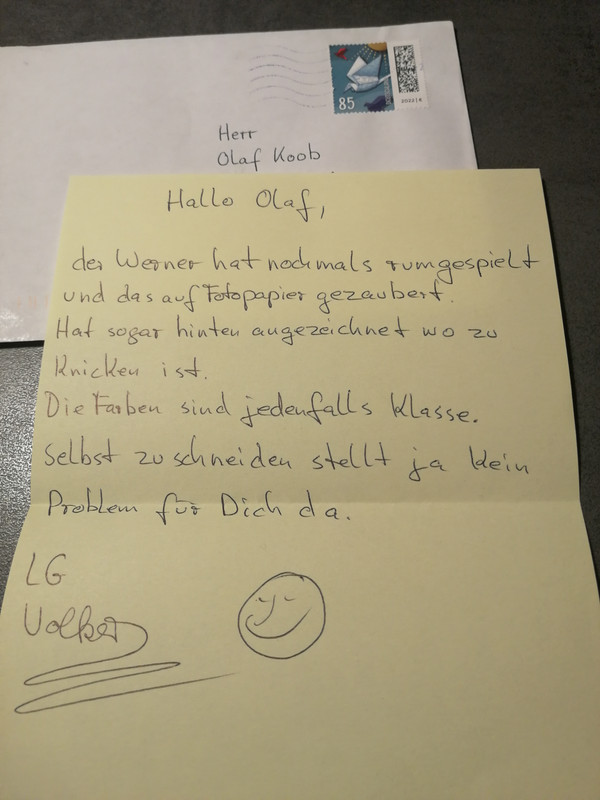 85
2022 | 4
Herr
Olaf Koob
Hallo Olaf,
der Werner hat nochmals rumgespielt
und das auf Fotopapier gezaubert.
Hat sogar hinten angezeichnet wo zu
knicken ist.
Die Farben sind jedenfalls klasse.
Selbst zu schneiden stellt ja kein
Problem für Dich da.
LG
Volker